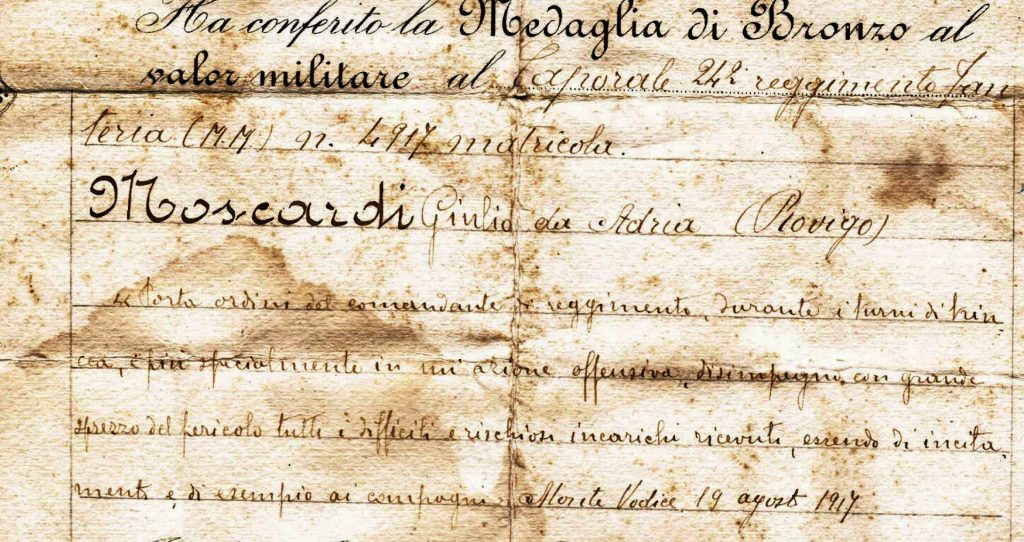 Ha conferito la Medaglia di Bronzo al
valor militare al Caporale 242º reggimento Fan
teria (M.M) n. 4917 matricola.
Moscardi Giulio da Adria (Rovigo)
« Porta ordini del comandante di reggimento, durante i turni di trin
cea, e più specialmente in un'azione offensiva, disimpegnò con grande
sprezzo del pericolo tutti i difficili e rischiosi incarichi ricevuti, essendo di incita
mento e di esempio ai compagni » Monte Vodice, 19 agost 1917